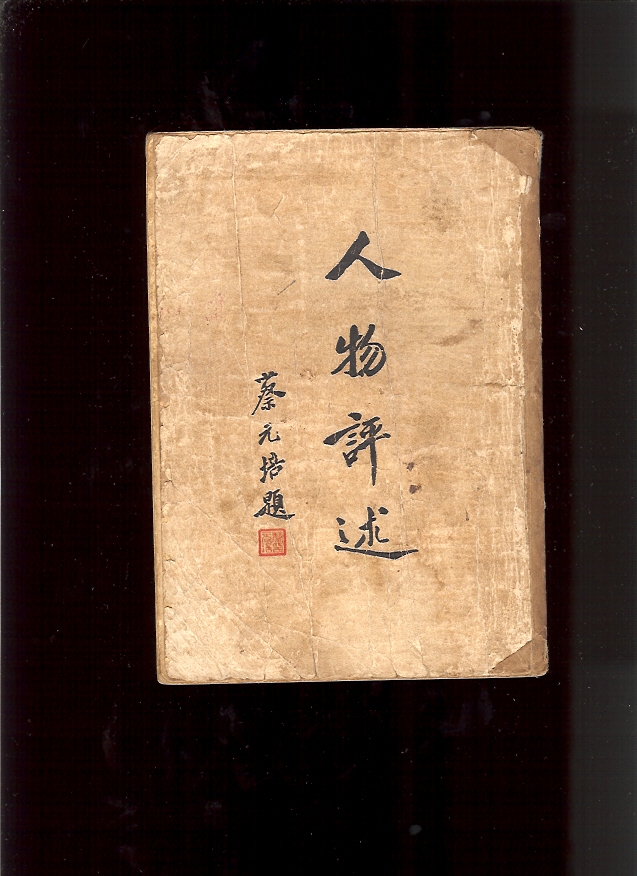 人物評述
蔡元培題